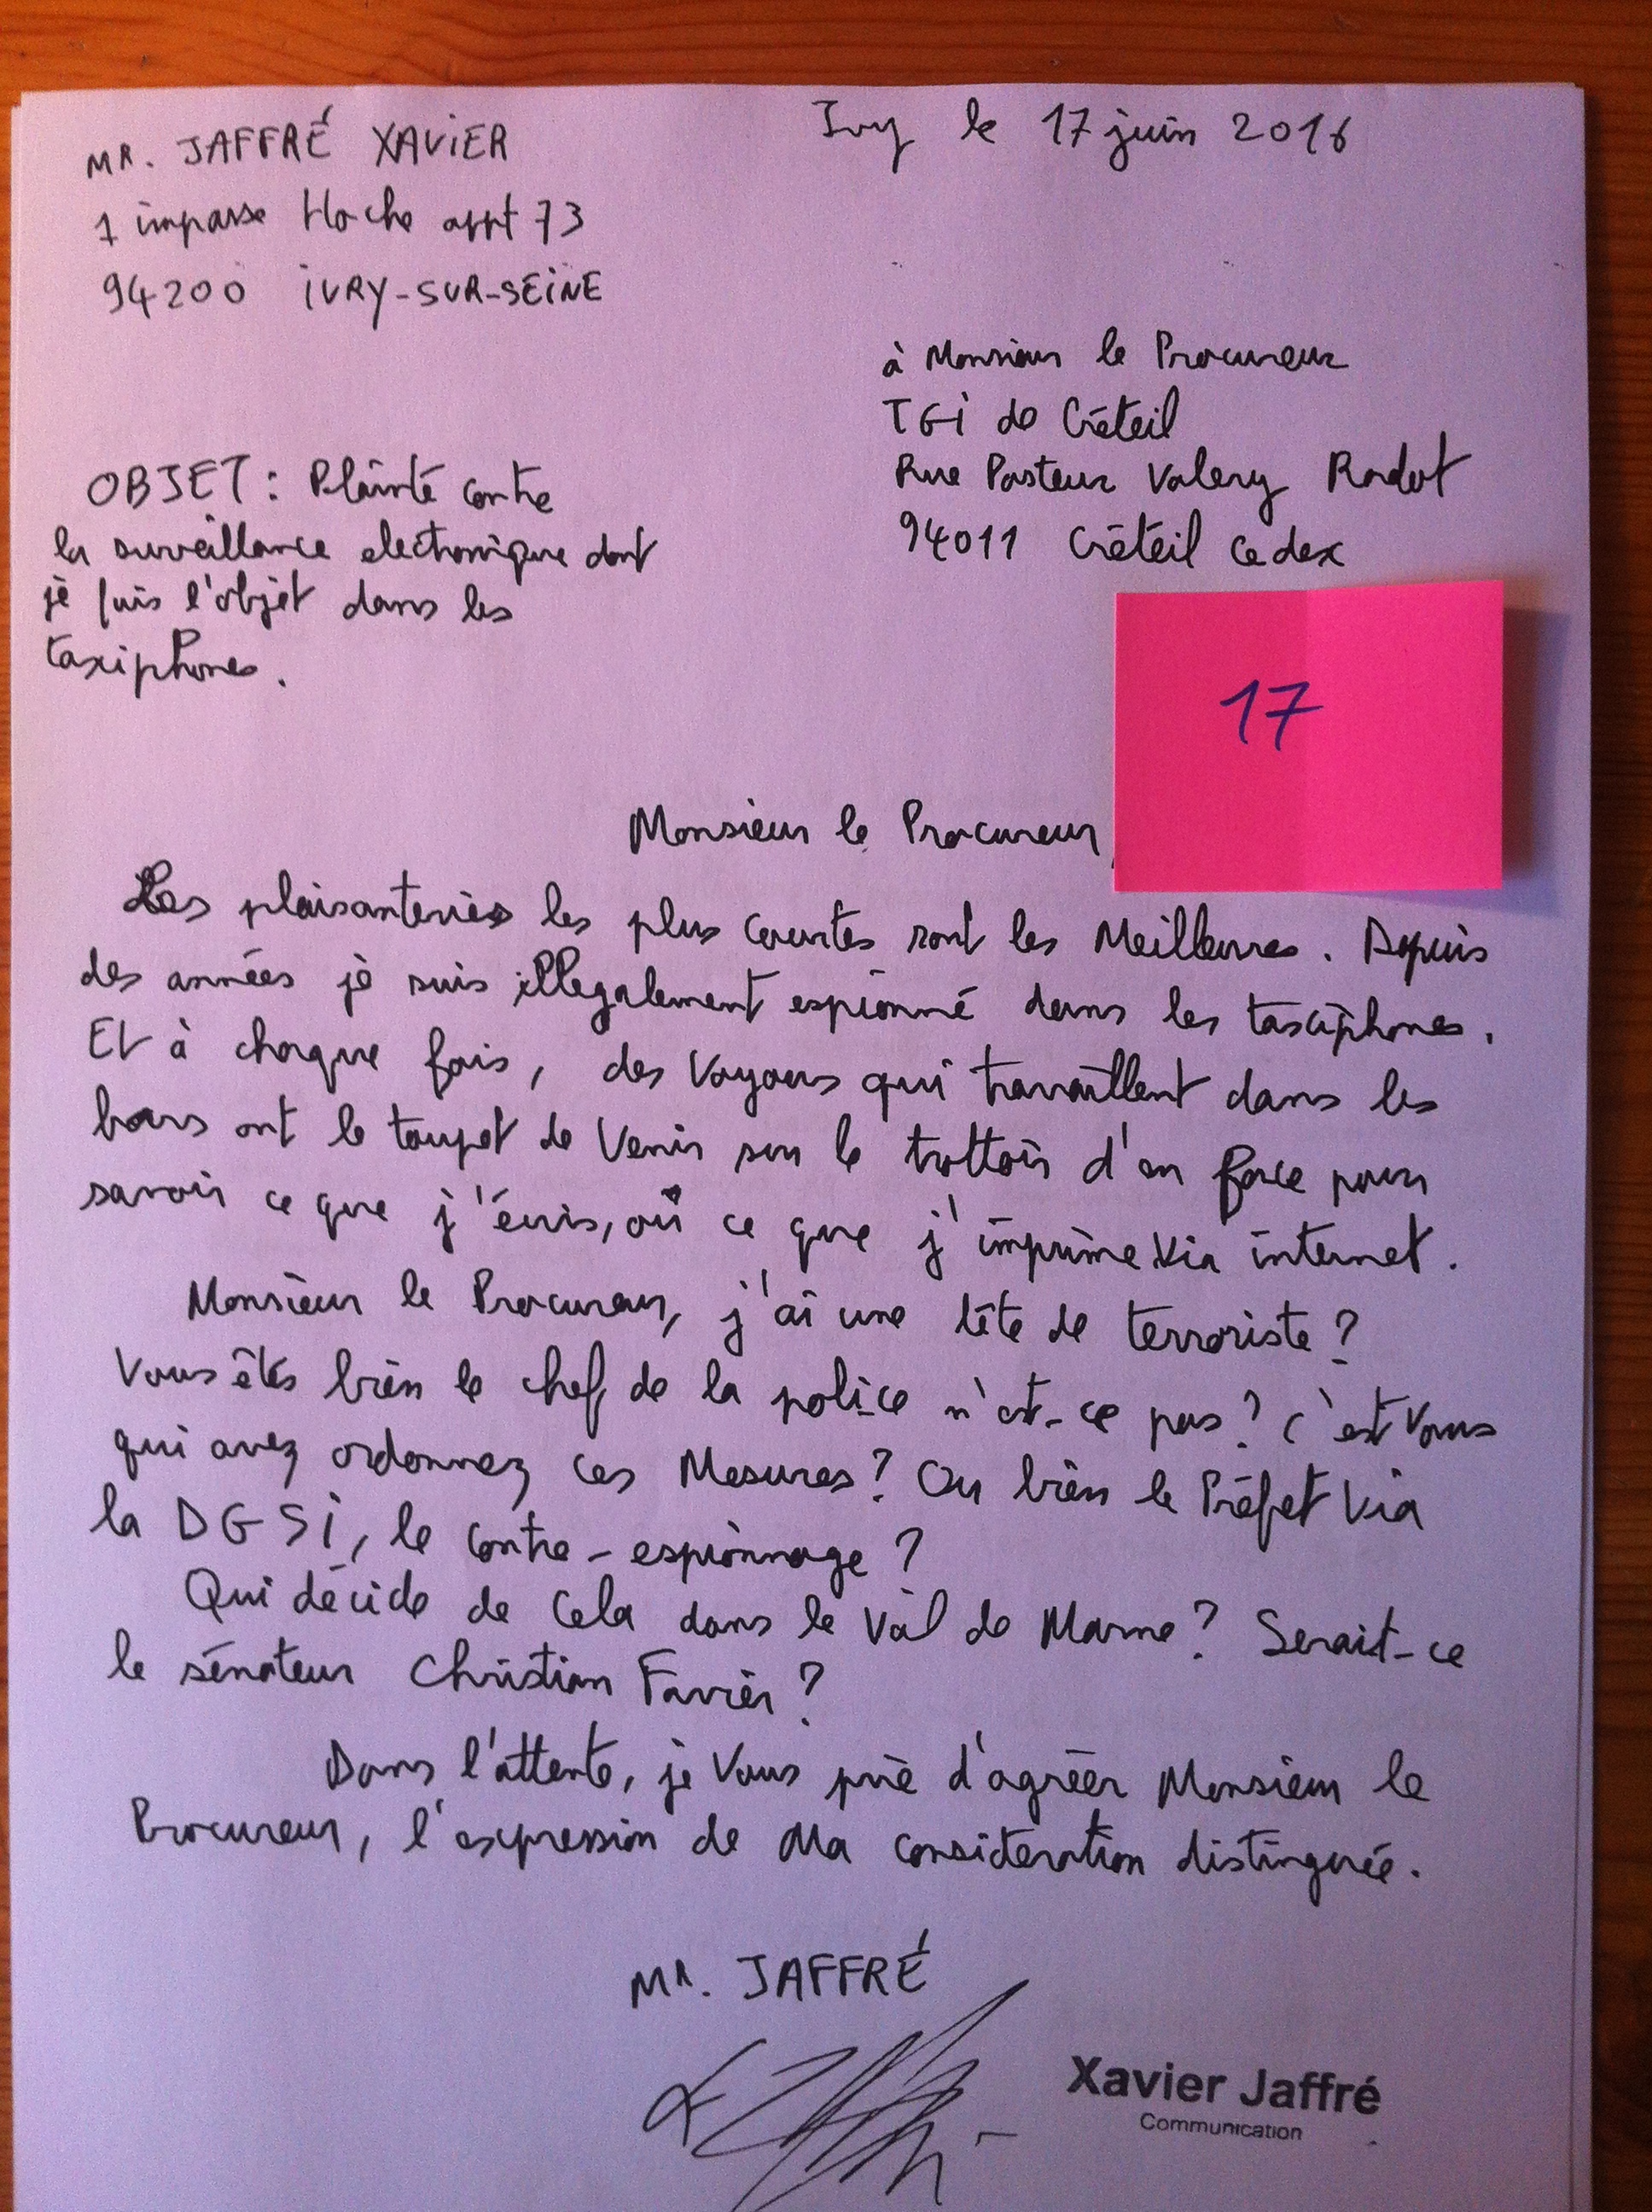 MR. JAFFRÉ XAVIER
Ivry le 17 juin 2016
1 impasse Hoche appt 73
94200 IVRY-SUR-SEINE
à Monsieur le Procureur
TGI de Créteil
Rue Pasteur Valery Radot
94011 Créteil Cedex
OBJET : Plainte contre
la surveillance electronique dont
je suis l'objet dans les
taxiphones.
17
Monsieur le Procureur,
Les plaisanteries les plus courtes sont les Meilleures. Depuis
des années je suis illegalement espionné dans les taxiphones.
Et à chaque fois, des Voyous qui travaillent dans les
bars ont le toupet de Venir sur le trottoir d'en face pour
savoir ce que j'écris, où ce que j'imprime via internet.
Monsieur le Procureur, j'ai une tête de terroriste ?
Vous êtes bien le chef de la police n'est-ce pas ? C'est Vous
qui avez ordonnez ces Mesures ? Ou bien le Préfet Via
la DGSI, le contre-espionnage ?
Qui décide de Cela dans le Val de Marne ? Serait-ce
le sénateur Christian Favier ?
Dans l'attente, je Vous prie d'agréer Monsieur le
Procureur, l'expression de Ma consideration distinguée.
MR. JAFFRÉ
Xavier Jaffré
Communication